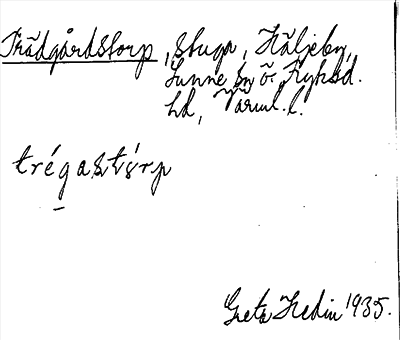 Trädgårdstorp, stuga, Häljeby,
Sunne sn Ö. Fryksd.
hd, Värml. l.
trégastórp
Greta Hedin 1935.